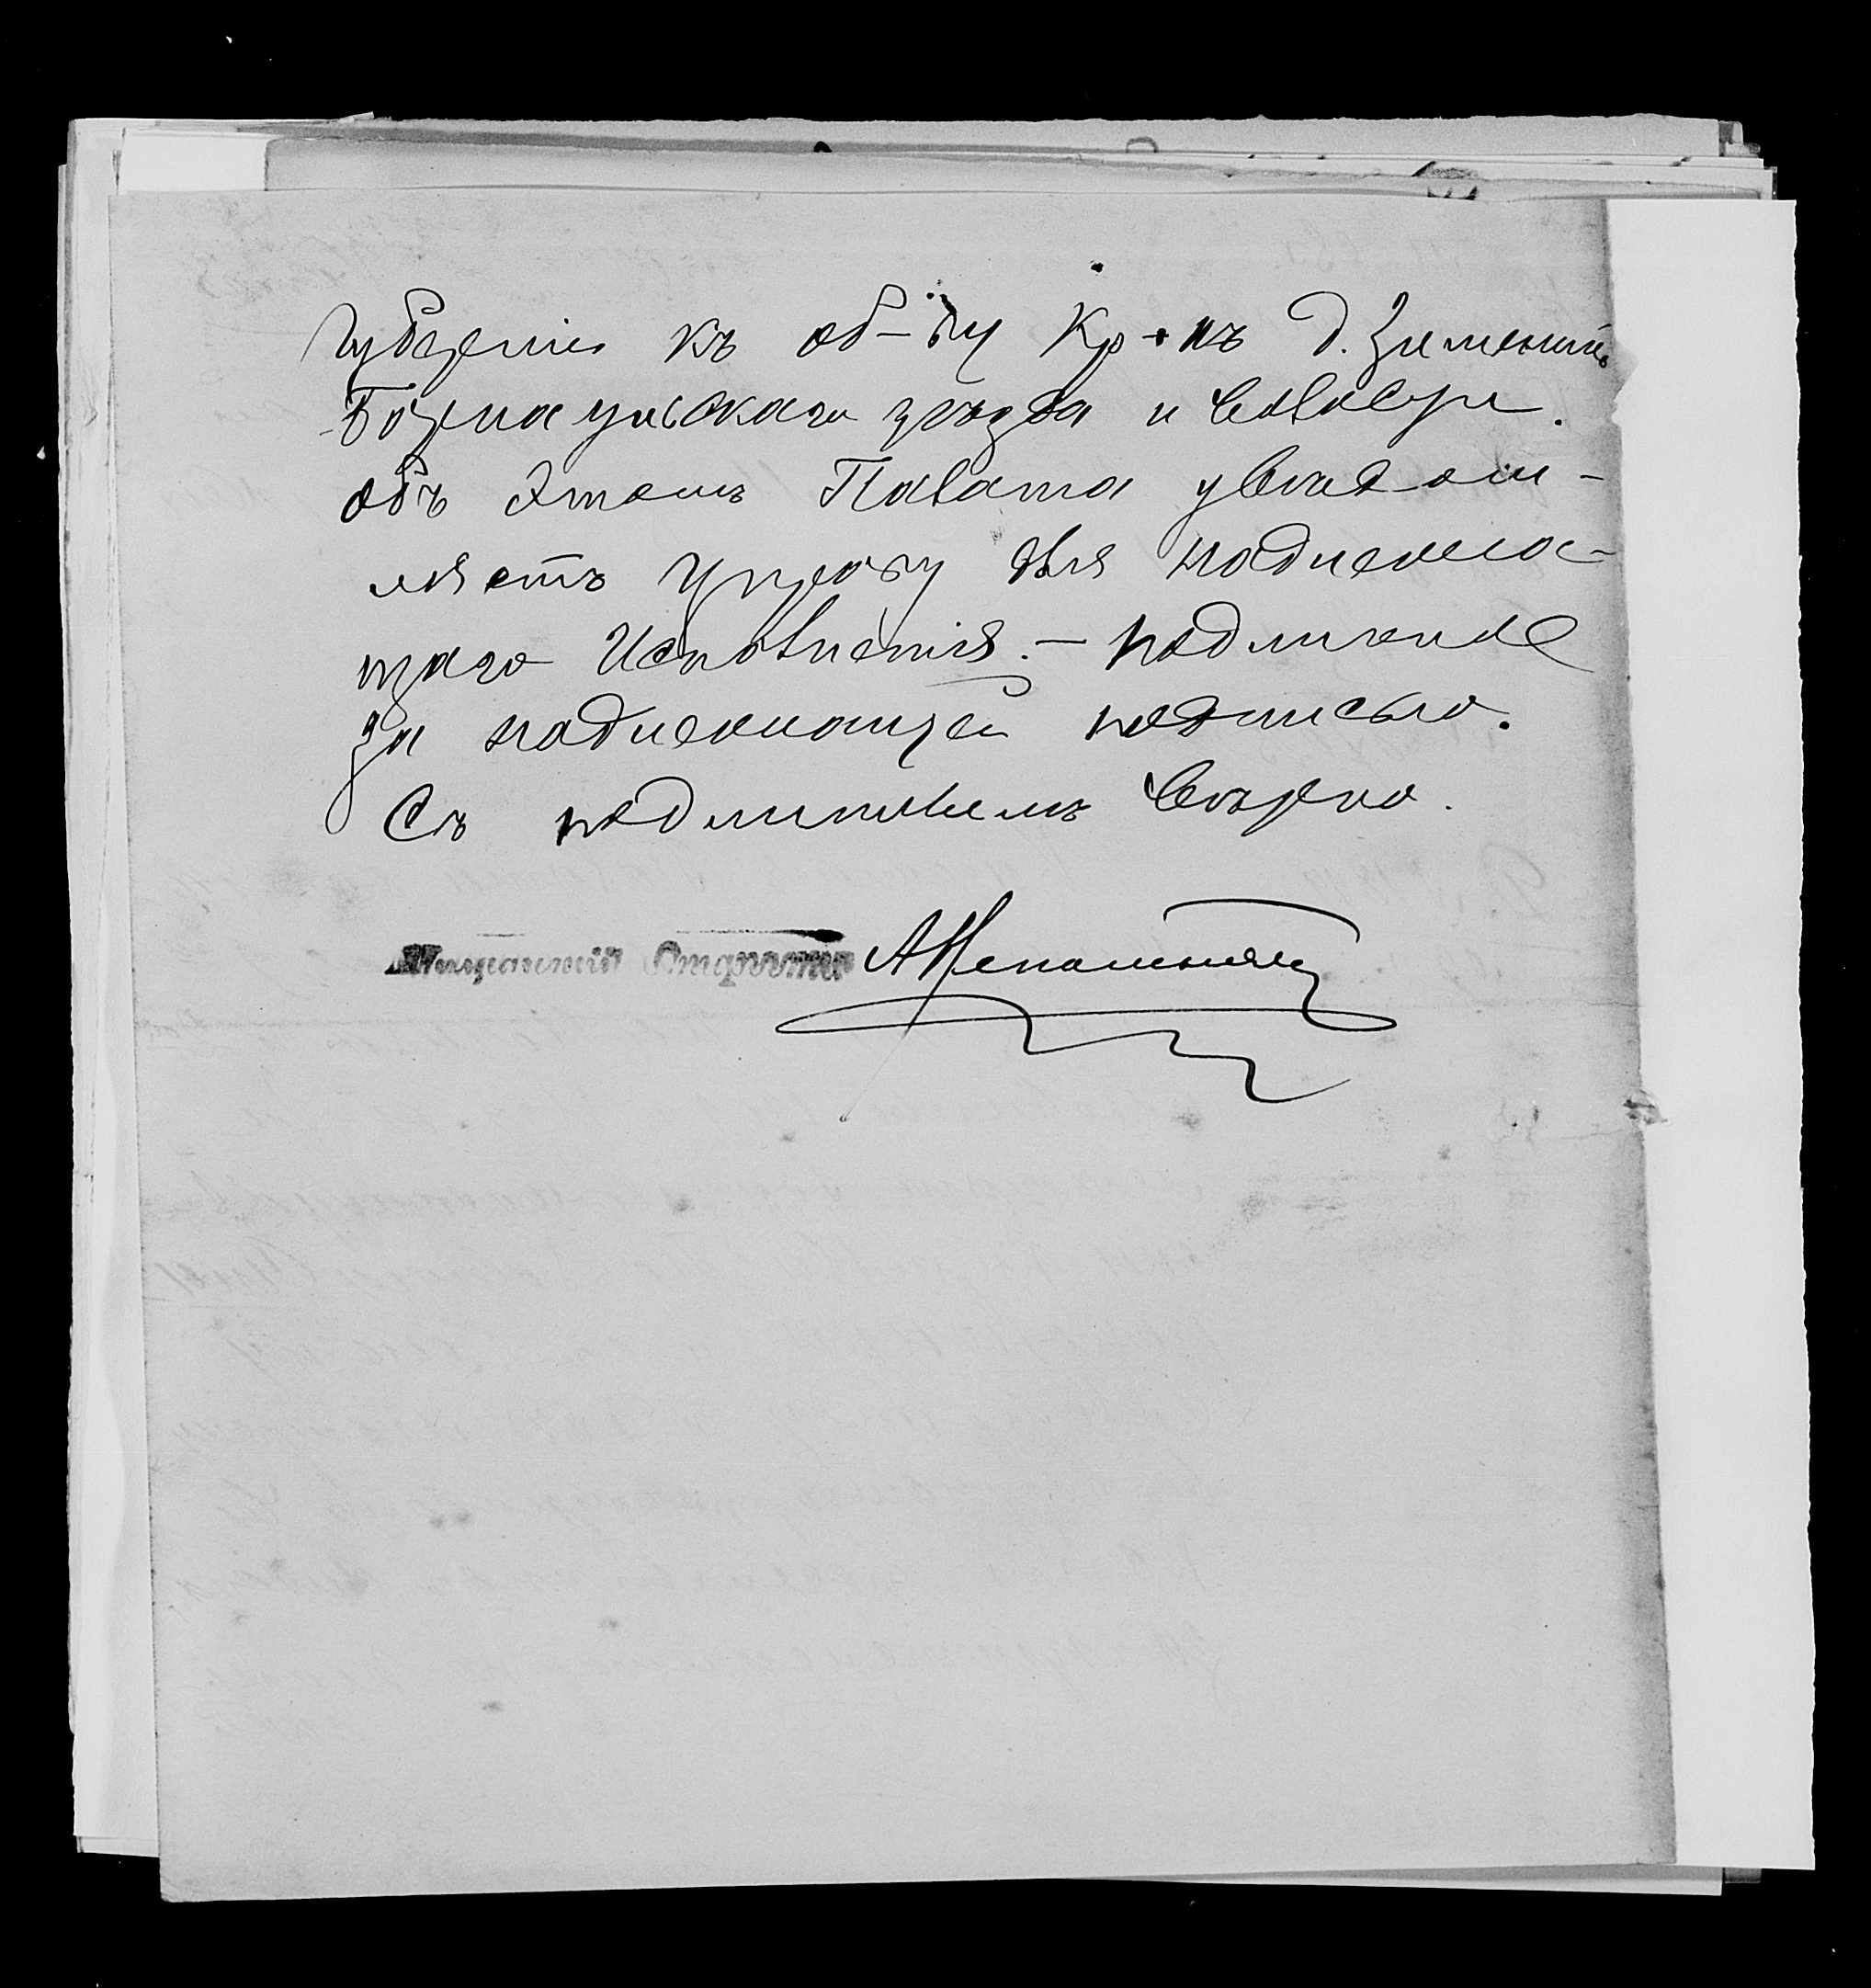 губерніи къ об-ву Кр-нъ д. Зименки
Барнаульскаго уѣзда и волости.
объ этомъ Палата увѣдом-
ляетъ Управу для надлежа-
щаго Исполненія. — подлинное
за надлежащей подписью.
Съ подлиннымъ вѣрно.
Мѣщанскій Староста